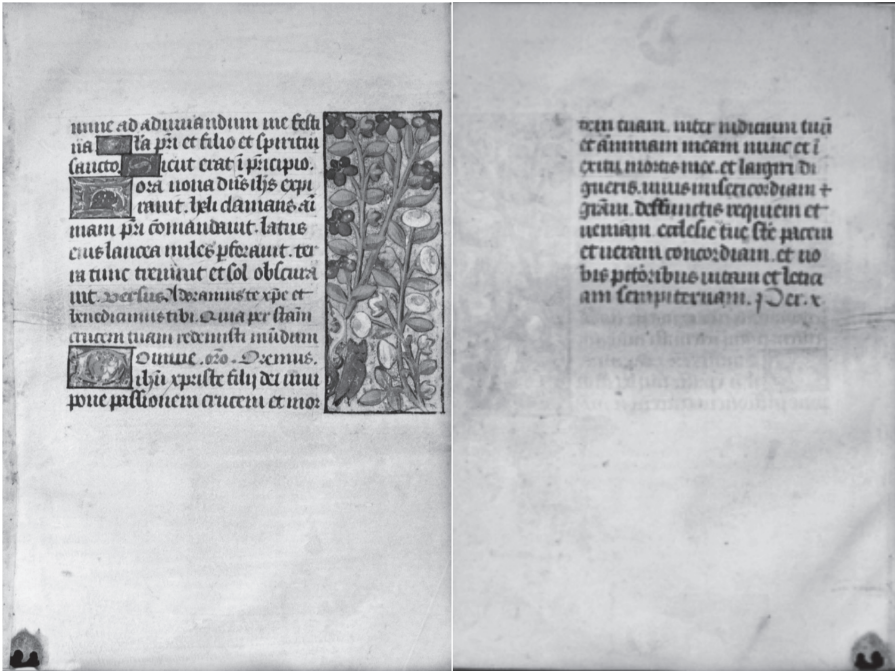 nunc ad adiuuandum me festi
na Gl̃a pr̃i et filio et spiritui
sancto Sicut erat ĩ pr̃icipio.
Hora nona dñs ihs̃ expi
rauit. heli clamans aĩ
mam pr̃i cõmandauit. latus
eius lancea miles pforauit. ter
ra tunc tremuit et sol obscura
uit. versus. Adoramus te xp̃e et
benedicimus tibi. Quia per s̃tam̃
crucem tuam redemisti mũdum
Domine. or̃o. Oremus.
ihũ xpriste filij dei uiui
pone passionem crucem et mor
tem tuam. inter iudicium tuũ
et animam meam nunc et ĩ
exitu mortis mee. et largiri di
gneris. uiuis misericordiam +
gr̃am. deffunctis requiem et
ueniam. ecclesie tue st̃e pacem
et ueram concordiam. et no
bis pc̃toribus uitam et leticĩ
am sempiternam. Per. x